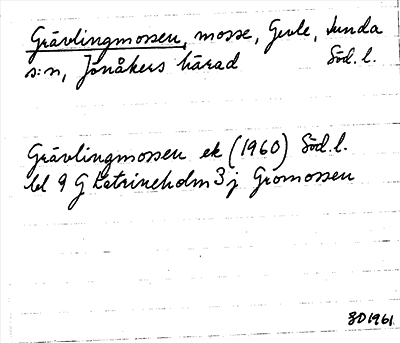 Grävlingmossen, mosse, Gevle, Lunda
s:n, Jönåkers härad Söd. l.
Grävlingmossen ek (1960) Söd. l.
bl 9 G Katrineholm 3 j Gromossen
801961